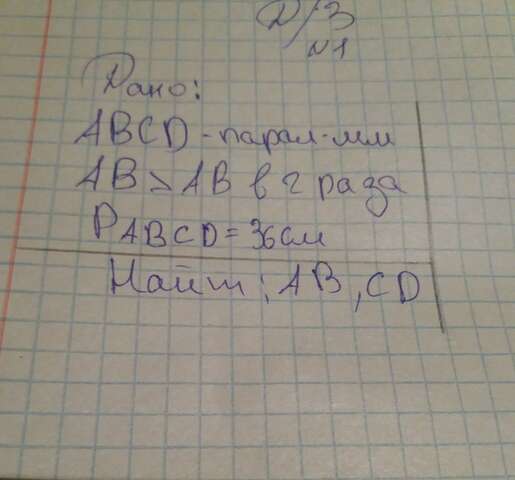 Д/З
№1
Дано:
ABCD - парал-мм
AB > AB в 2 раза
PABCD = 36 см
Найти: AB, CD